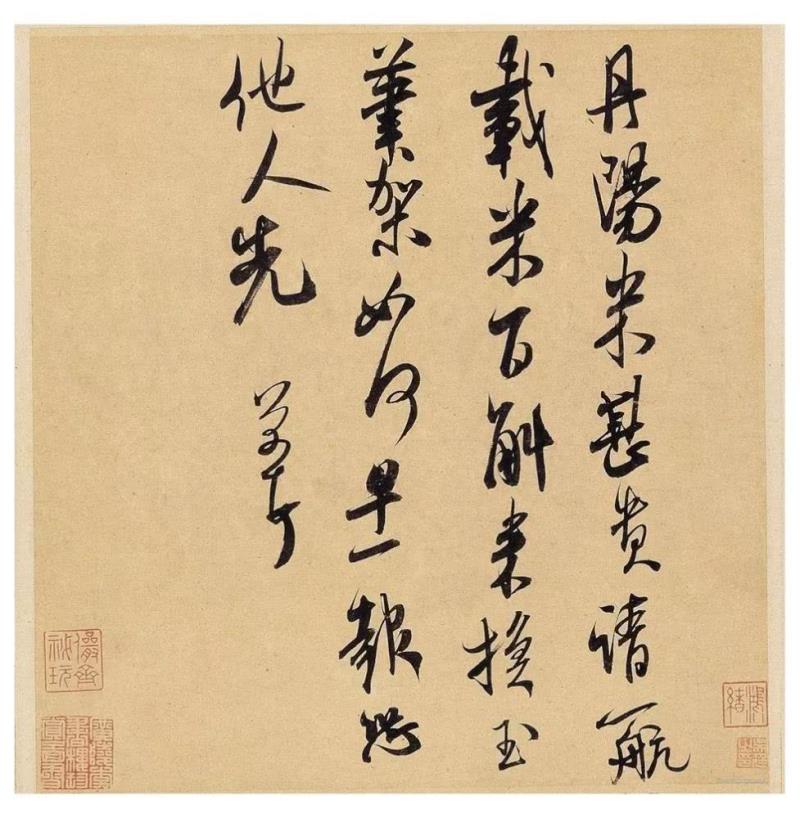 丹陽米甚貴請一航
載米百斛来換玉
筆架如何早一報恐
他人先